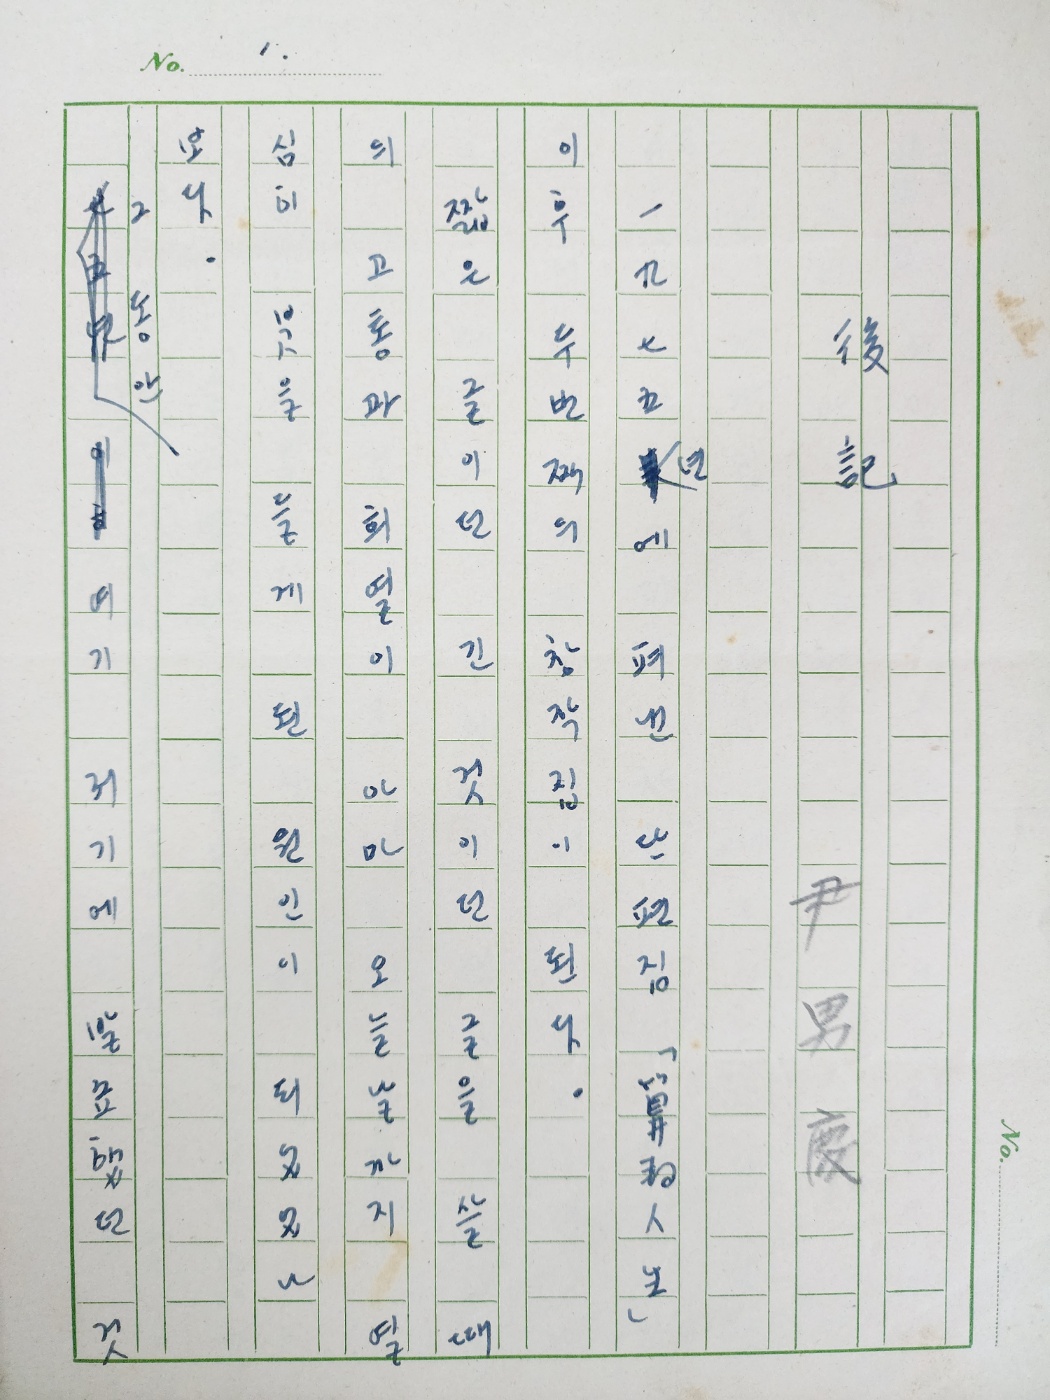 No. 1.
後記
尹男慶
一九七五년에 펴낸 단편집
이후 두번째의 창작집이 된다.
짧은 글이던 긴 것이던 글을 쓸 때
의 고통과 희열이 아마 오늘날까지 열
심히 붓을 들게 된 원인이 되었었나
보다.
그동안
여기 저기에 발표했던 것
No.